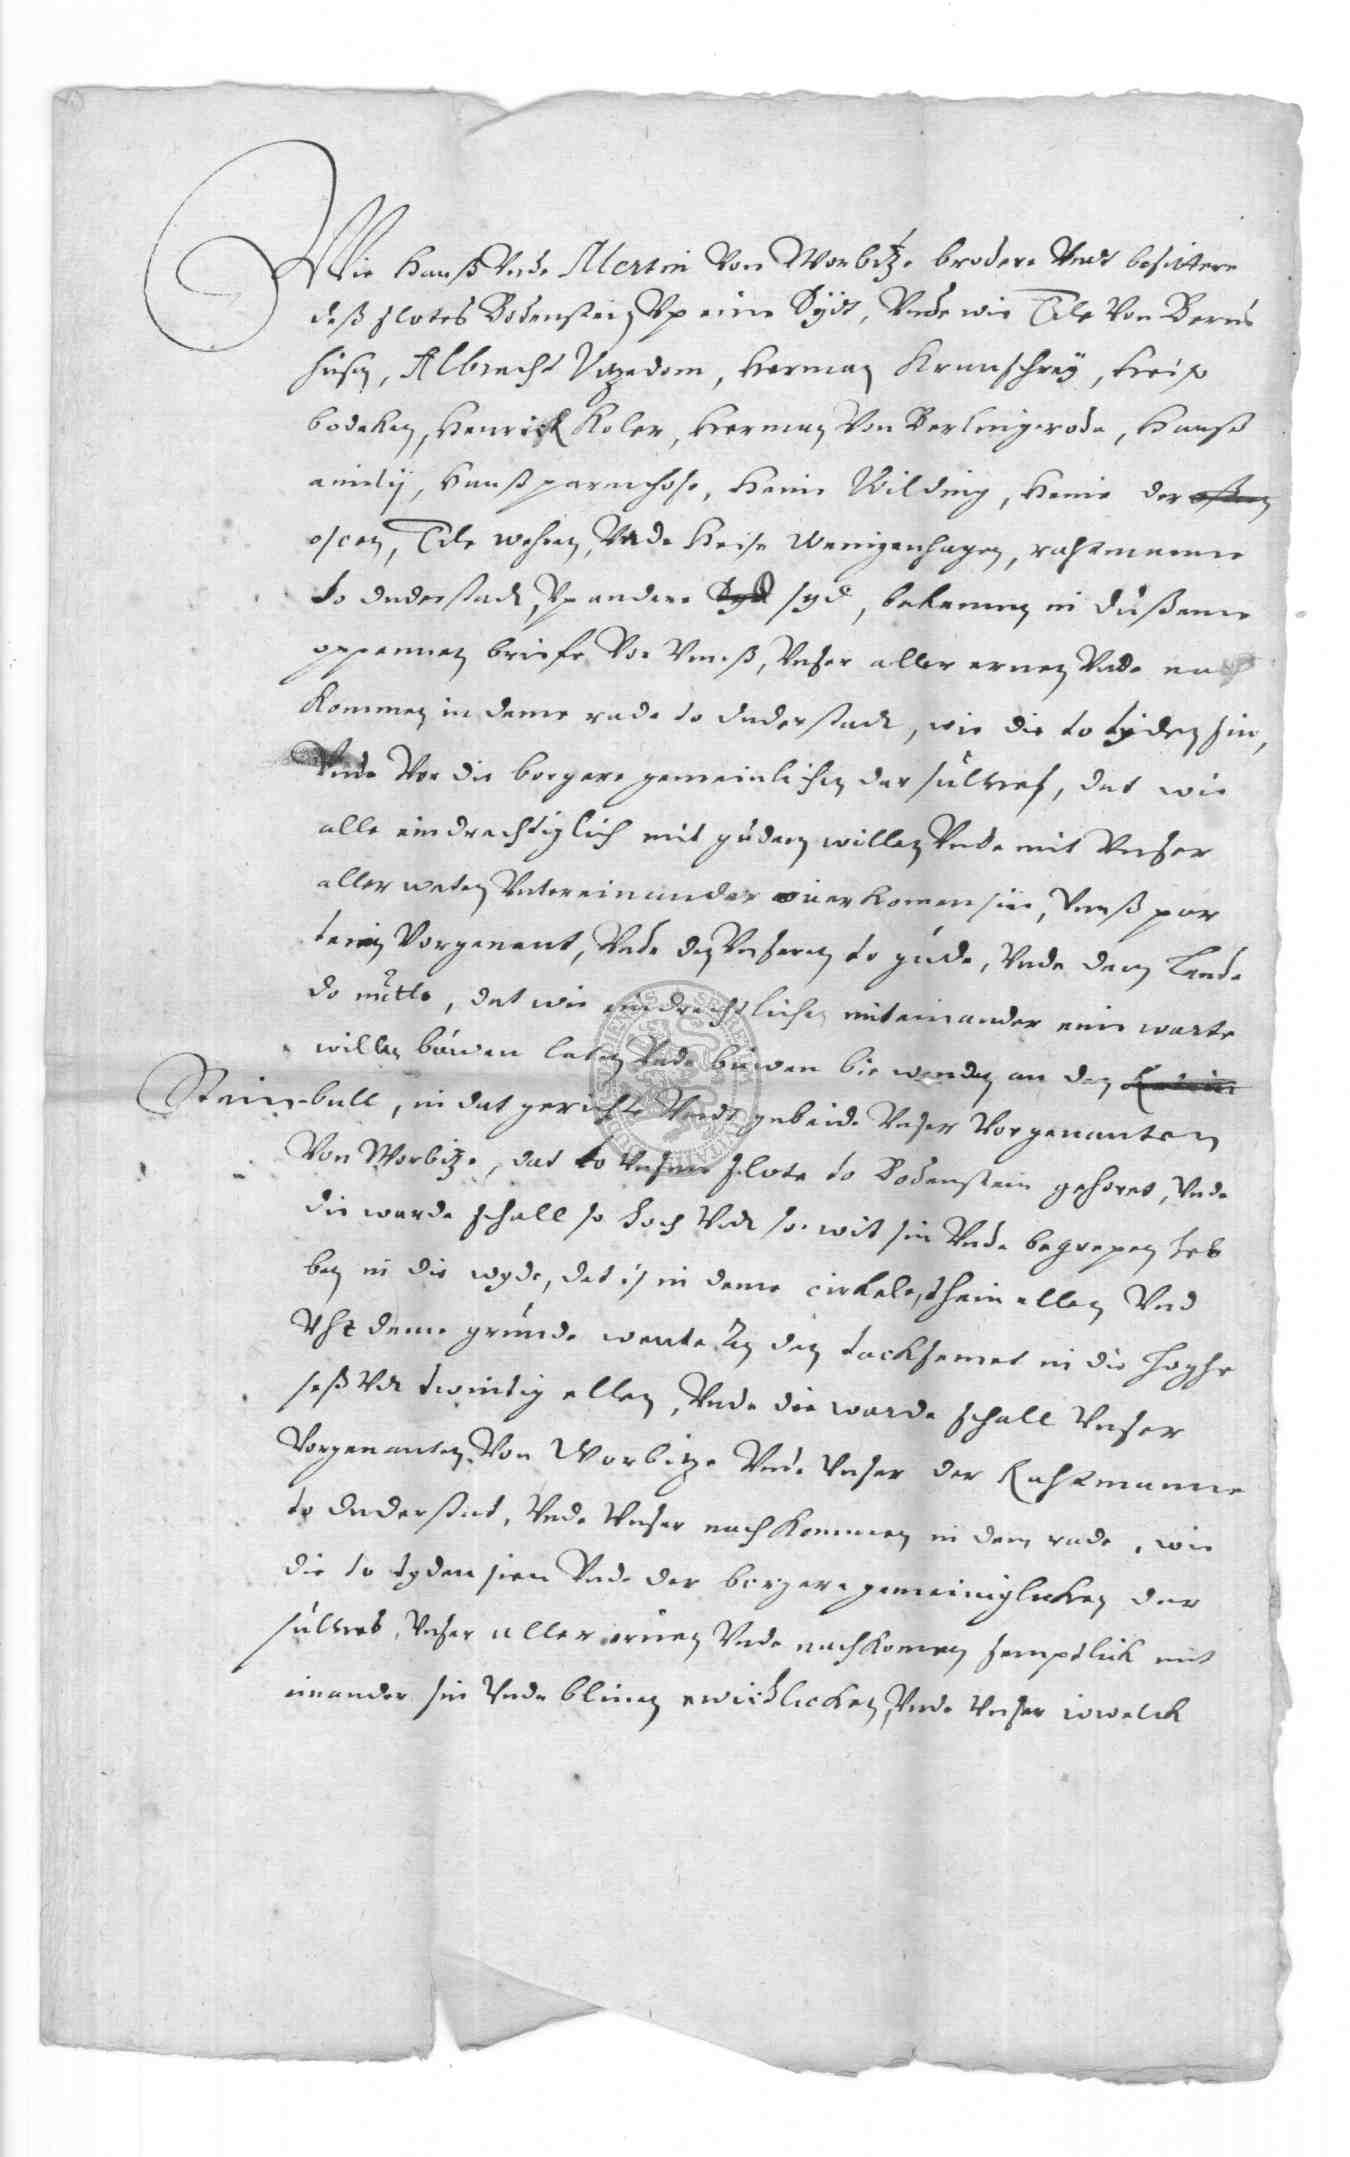 Wie Hanß Vnde Mertin Von Worbitze brodere Vnd besittere
deß slotes Bodenstein Vp eine Sydt, Vnde wie Tile Von Berns
husen, Albrecht Vitzedom, Herman Kruashrey, Heiso
bodeken, Henrick Koler, Herman Von Berlingerode, Hanß
amely, Hanß parmhose, Heine Wilding, Heine der
oscen, Tile wehren, Vnde Heise Wenigenhagen, rahtmanne
to duderstadt, Vp andere syd, bekennen in dußeme
oppennen briefe Vor Vnnß, Vnser aller erven Vnde na
kommen in deme rade to duderstadt, wie die to tyden sin,
Vnde Vor die borgere gemeinlichen dar sulves, dat wie
alle eindrachtiglich mit guden willen Vnde mit Vnser
aller weten Vntereinander overkomen sin, Vnnß par
teien Vorgenant, Vnde den Vnseren to gude, Vnde dem Lande
do nutte, dat wie eindrachtlichen miteinander eine warte
willen buwen laten Vnde buwen bie wenden an den
Steinbull, in dat gerichte Vnde gebeide Vnser Vorgenanten
Von Worbitze, dat to Vnseme slote to Bodenstein gehoret, Vnde
die warde schall so hoch Vnd so wit sin Vnde begrepen heb
ben in die wyde, dat is in deme cirkele, thein ellen Vnd
Vht deme grunde wente an den tacksemet in die hoghe
seß Vnd twintig ellen, Vnde die warde schall Vnser
Vorgenanten Von Worbitze Vnde Vnser der Rahtmanne
to duderstat, Vnde Vnser nachkommen in dem rade, wie
die to tyden sien Vnde der borgere gemeiniglicken dar
sulves, Vnser aller erven Vnde nachkomen semptlick mit
einander sin Vnde bliven ewichlicken, Vnde Vnser iowelck